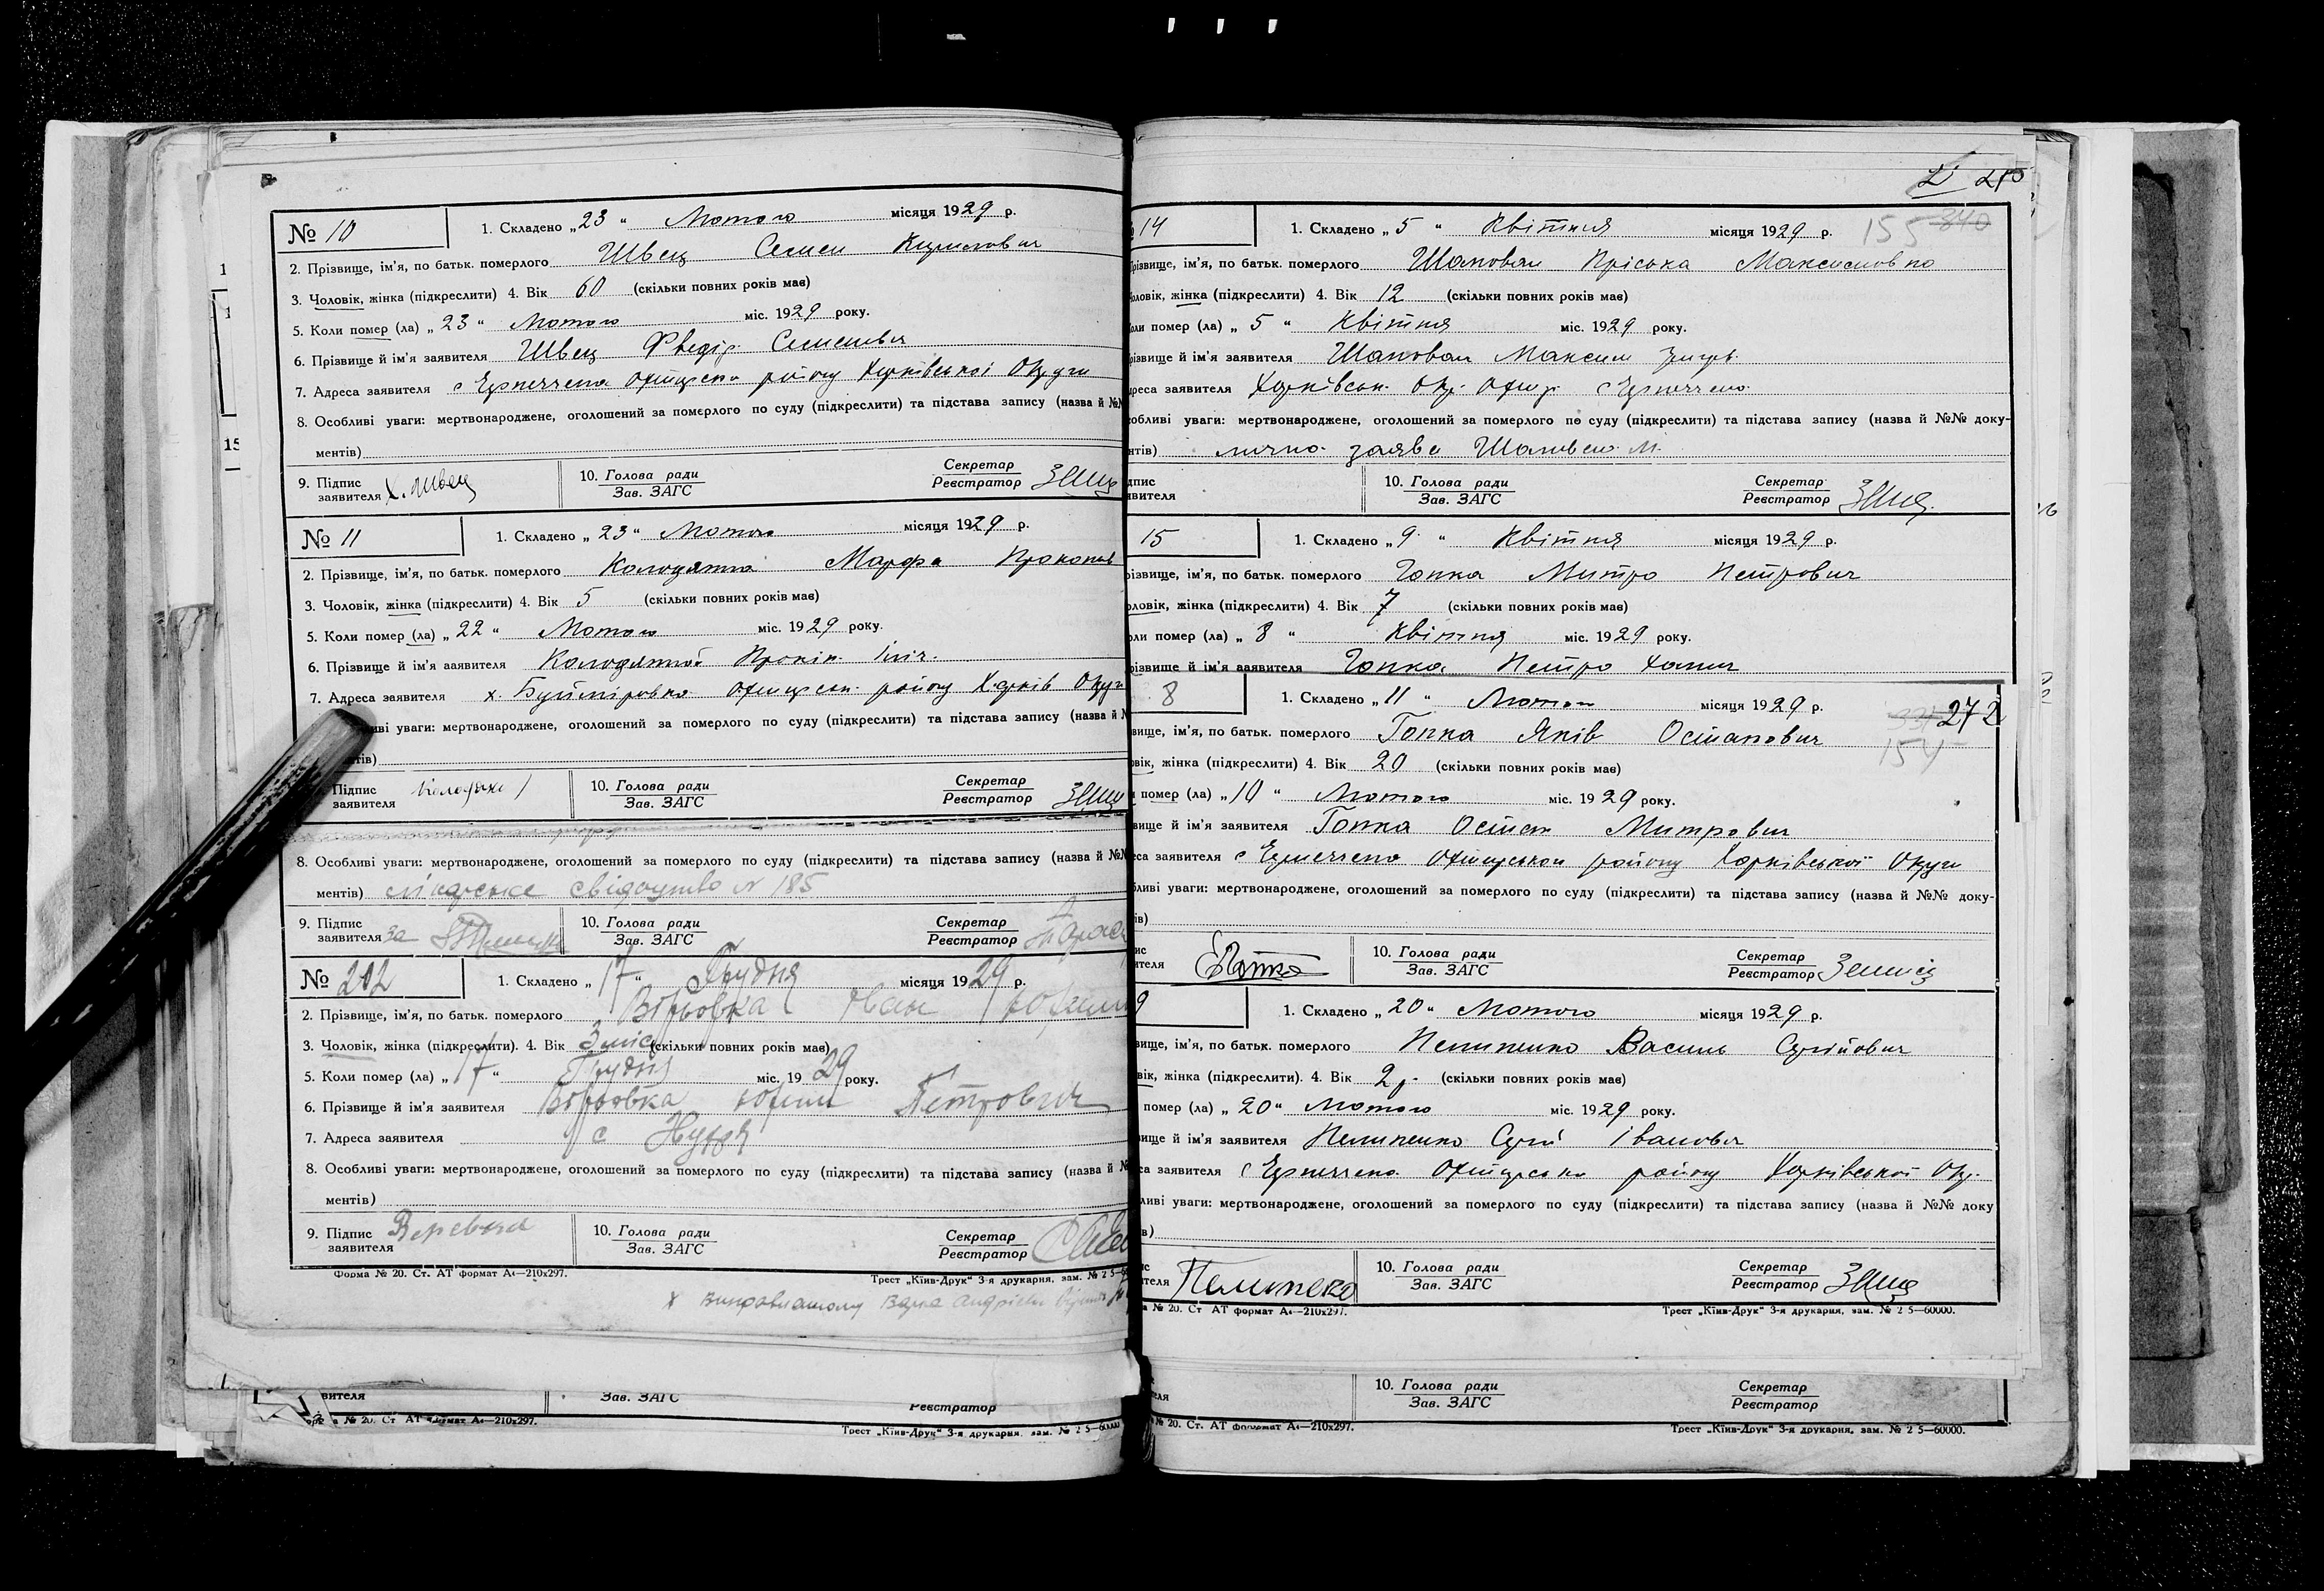 № 10
1. Складено „ 23 “ Лютого місяця 1929 р.
2. Прізвище, ім'я, по батьк. померлого Швець Семен Кирилович
3. Чоловік, жінка (підкреслити) 4. Вік 60 (скільки повних років має)
5. Коли помер (ла) „ 23 “ Лютого міс. 1929 року.
6. Прізвище й ім'я заявителя Швець Федір Семенович
7. Адреса заявителя с району Харківської Округи
8. Особливі уваги: мертвонароджене, оголошений за померлого по суду (підкреслити) та підстава запису (назва й №
ментів)
9. Підпис заявителя Х. Швец
10. Голова ради
Зав. ЗАГС
Секретар
Реєстратор
№ 11
1. Складено „ 23 “ Лютого місяця 1929 р.
2. Прізвище, ім'я, по батьк. померлого Колодяжна Марфа Прокопів
3. Чоловік, жінка (підкреслити) 4. Вік 5 (скільки повних років має)
5. Коли помер (ла) „ 22 “ Лютого міс. 1929 року.
6. Прізвище й ім'я заявителя Колодяжной Прокіп
7. Адреса заявителя х. Буймеровка району Харків Округ
иві уваги: мертвонароджене, оголошений за померлого по суду (підкреслити) та підстава запису (назва й
тів)
Підпис заявителя
10. Голова ради
Зав. ЗАГС
Секретар
Реєстратор
8. Особливі уваги: мертвонароджене, оголошений за померлого по суду (підкреслити) та підстава запису (назва й №
ментів) лікарське свідоцтво № 185
9. Підпис заявителя за
10. Голова ради
Зав. ЗАГС
Секретар
Реєстратор
№ 202
1. Складено „ 17 “ Грудня місяця 1929 р.
2. Прізвище, ім'я, по батьк. померлого Вірьовка Іван
3. Чоловік, жінка (підкреслити). 4. Вік 3 міс (скільки повних років має)
5. Коли помер (ла) „ 17 “ Грудня міс. 1929 року.
6. Прізвище й ім'я заявителя Вірьовка Юхим Петрович
7. Адреса заявителя с
8. Особливі уваги: мертвонароджене, оголошений за померлого по суду (підкреслити) та підстава запису (назва й №
ментів)
9. Підпис заявителя Веревка
10. Голова ради
Зав. ЗАГС
Секретар
Реєстратор
Форма № 20. Ст. АТ формат А4—210х297.
Трест „Київ-Друк“ 3-я друкарня, зам. № 2 5—
вителя
Зав. ЗАГС
Реєстратор
№ 20. Ст АТ формат А4—210х297.
Трест „Київ-Друк“ 3-я друкарня, зам. № 2 5—60000
14
1. Складено „ 5 “ Квітня місяця 1929 р.
155 340
різвище, ім'я, по батьк. померлого Шаповал Пріська Максимовна
оловік, жінка (підкреслити) 4. Вік 12 (скільки повних років має)
оли помер (ла) „ 5 “ Квітня міс. 1929 року.
різвище й ім'я заявителя Шаповал Максим Григор.
дреса заявителя Харківськ. Окр. с
собливі уваги: мертвонароджене, оголошений за померлого по суду (підкреслити) та підстава запису (назва й №№ доку-
нтів) лична заява Шаповал М.
дпис
явителя
10. Голова ради
Зав. ЗАГС
Секретар
Реєстратор
15
1. Складено „ 9 “ Квітня місяця 1929 р.
різвище, ім'я, по батьк. померлого Гопка Митро Петрович
оловік, жінка (підкреслити) 4. Вік 7 (скільки повних років має)
оли помер (ла) „ 8 “ Квітня міс. 1929 року.
різвище й ім'я заявителя Гопка Петро
8
1. Складено „ 11 “ Лютого місяця 1929 р.
272
154
вище, ім'я, по батьк. померлого Гопка Яків Остапович
вік, жінка (підкреслити) 4. Вік 20 (скільки повних років має)
помер (ла) „ 10 “ Лютого міс. 1929 року.
вище й ім'я заявителя Гопка Остап Митрович
еса заявителя с району Харківської Округи
бливі уваги: мертвонароджене, оголошений за померлого по суду (підкреслити) та підстава запису (назва й №№ доку-
ів)
ис
ителя Гопка
10. Голова ради
Зав. ЗАГС
Секретар
Реєстратор
9
1. Складено „ 20 “ Лютого місяця 1929 р.
вище, ім'я, по батьк. померлого Пелипенко Василь Сергійович
вік, жінка (підкреслити). 4. Вік 2 р. (скільки повних років має)
помер (ла) „ 20 “ Лютого міс. 1929 року.
вище й ім'я заявителя Пелипенко Сергій Іванович
са заявителя с району Харківської Окр.
ливі уваги: мертвонароджене, оголошений за померлого по суду (підкреслити) та підстава запису (назва й №№ доку
в)
ителя
10. Голова ради
Зав. ЗАГС
Секретар
Реєстратор
№ 20. Ст АТ формат А4—210х297.
Трест „Київ-Друк“ 3-я друкарня, зам. № 2 5—60000.
10. Голова ради
Зав. ЗАГС
Секретар
Реєстратор
№ 20. Ст. АТ формат А4—210х297.
Трест „Київ-Друк“ 3-я друкарня, зам. № 2 5—60000.